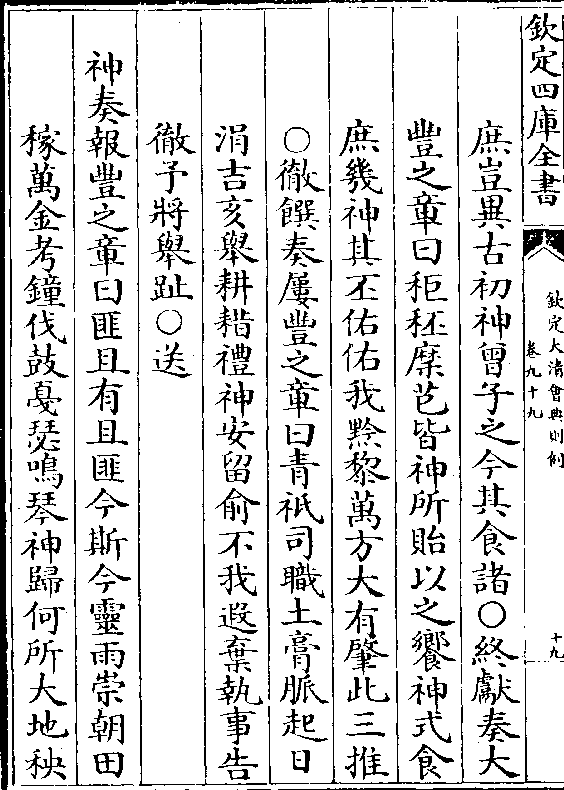 欽定四庫全書
欽定大清會典則例
卷九十九
十九
庶豈異古初神曾予之今其食諸○終獻奏大
豐之章曰秬秠穈芑皆神所貽以之饗神式食
庶幾神其丕佑佑我黔黎萬方大有肇此三推
○徹饌奏屢豐之章曰青祇司職土膏脈起日
涓吉亥舉耕耤禮神安留俞不我遐棄執事告
徹予將舉趾○送
神奏報豐之章曰匪且有且匪今斯今靈雨崇朝田
稼萬金考鐘伐鼓戞瑟鳴琴神歸何所大地秧